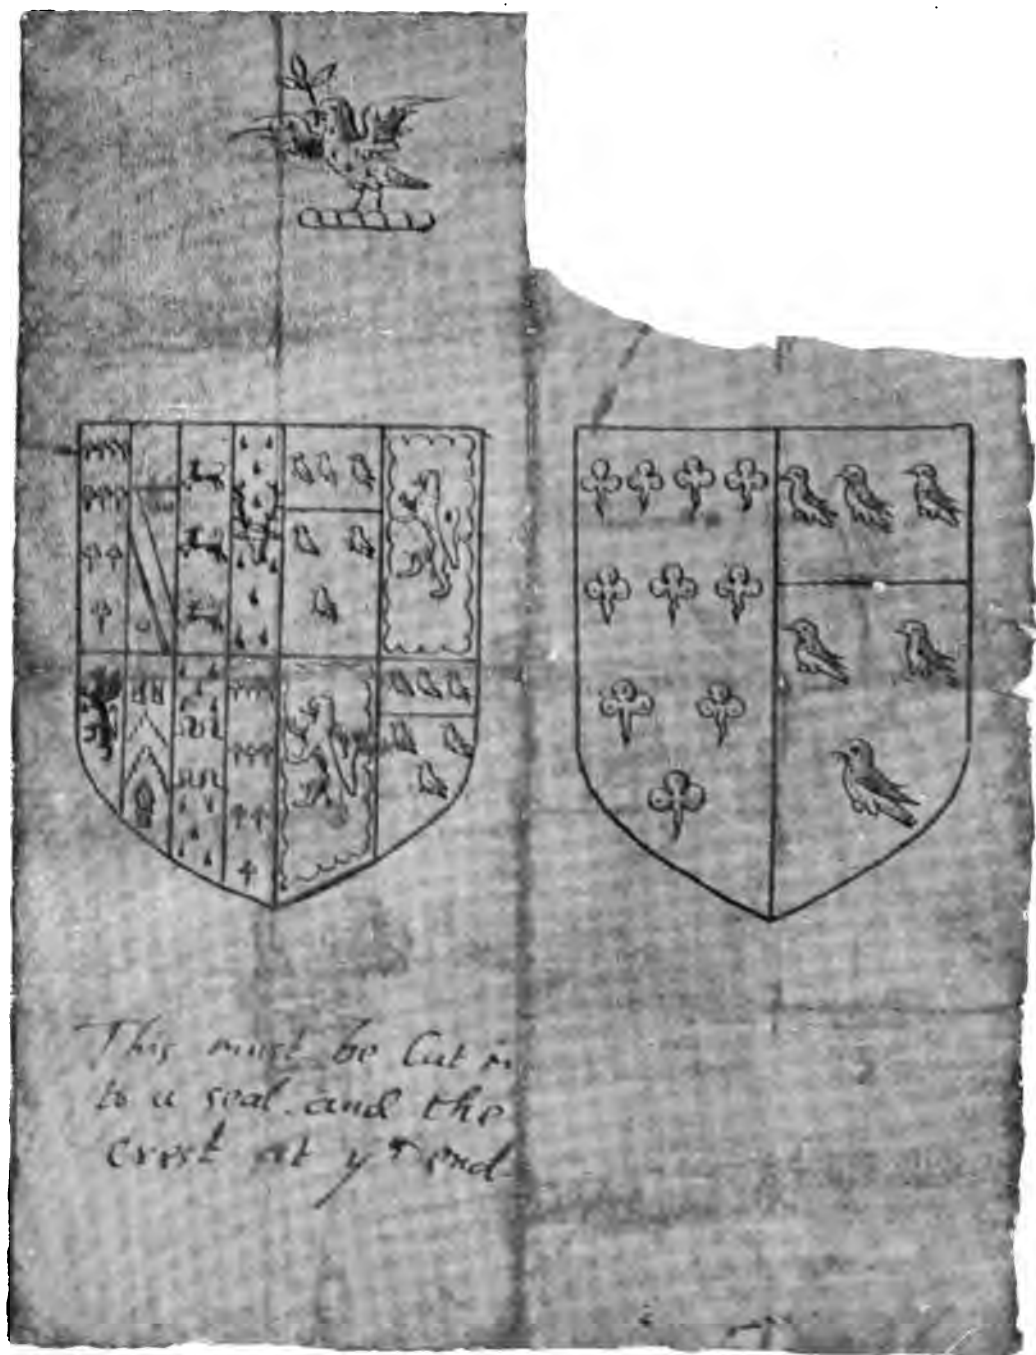 This must be Cut in
to a seal and the
crest at yᵉ end